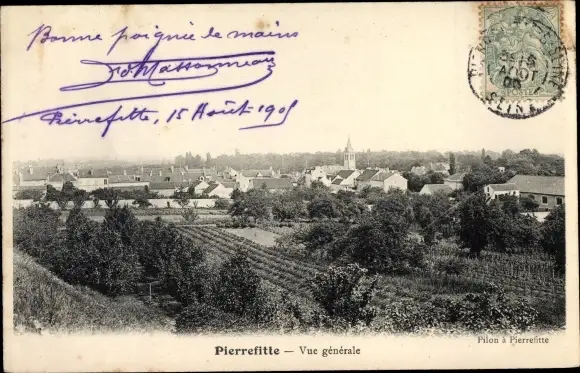 Bonne poignée de mains
Pierrefitte, 15 Août 1905
PIERREFITTE
15
AOUT
05
SEINE
Pierrefitte – Vue générale
Pilon à Pierrefitte